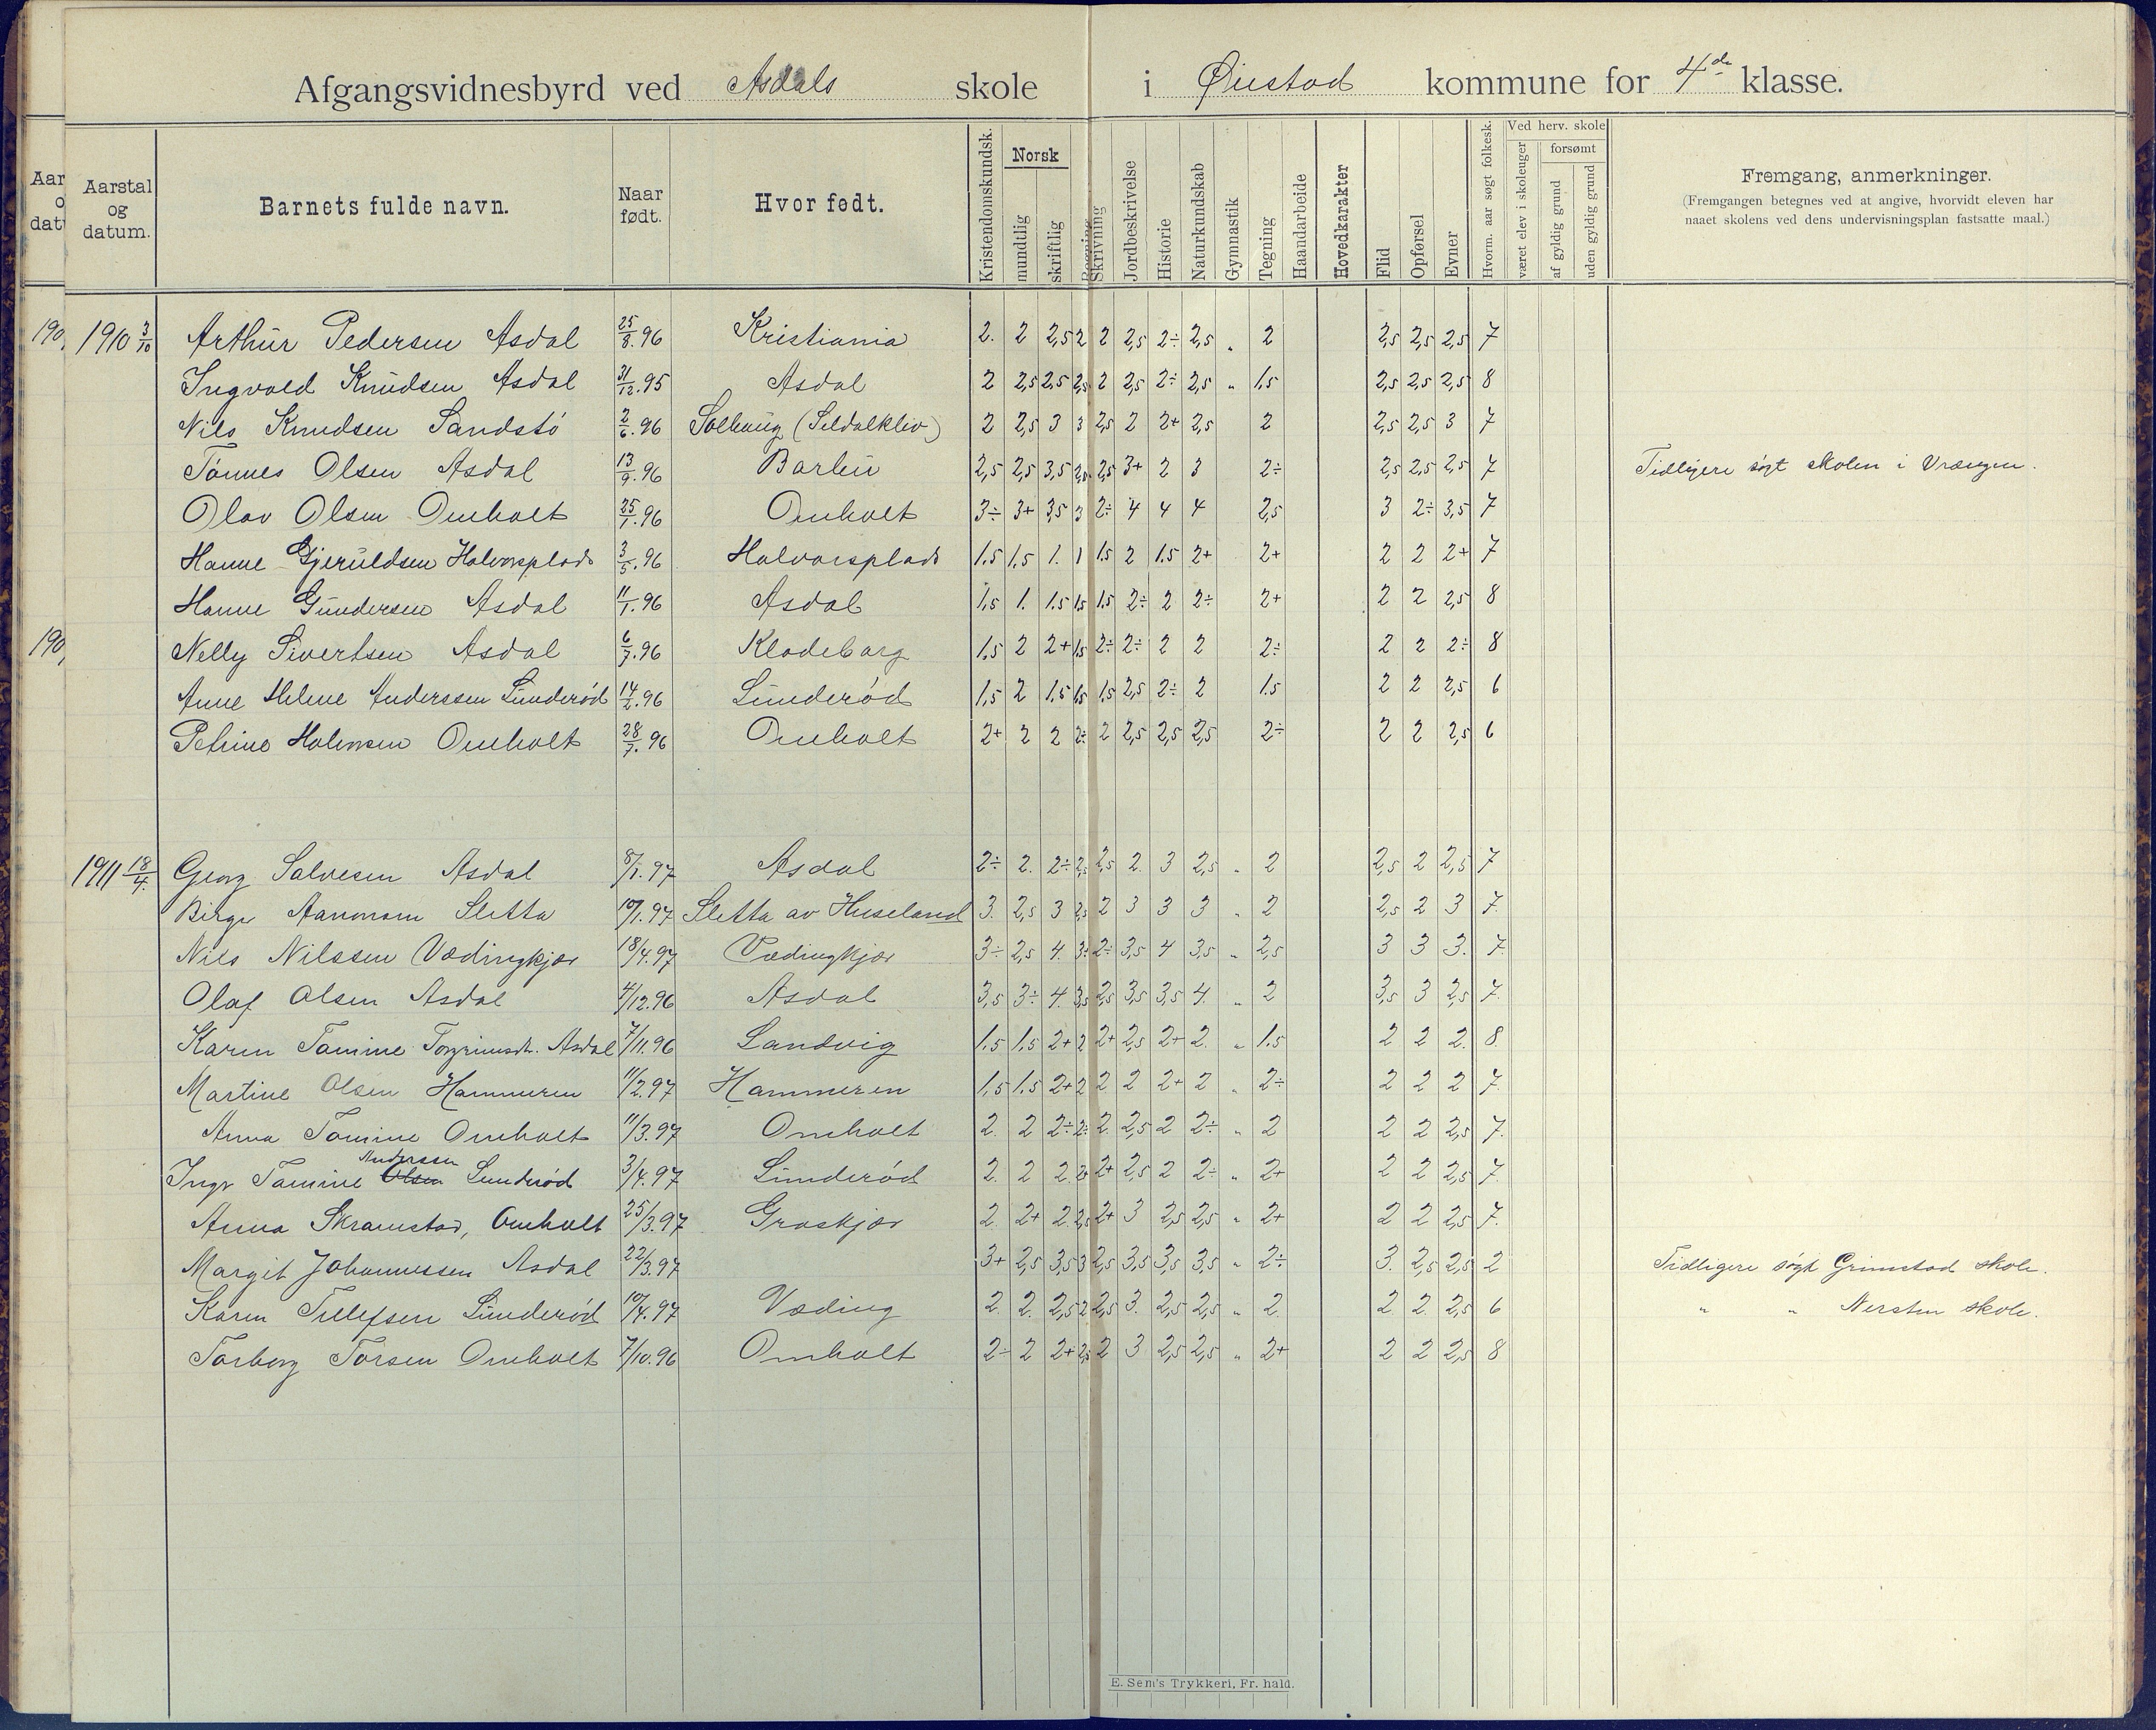 Afgangsvidnesbyrd ved Asdals skole i Øiestad kommune for 4de klasse.
Aarstal og datum. Barnets fulde navn. Naar født. Hvor født. Kristendomskundsk. Norsk mundtlig skriftlig Regning Skrivning Jordbeskrivelse Historie Naturkundskab Gymnastik Tegning Haandarbeide Hovedkarakter Flid Opførsel Evner Hvorm. aar søgt folkesk. Ved herv. skole været elev i skoleuger forsømt af gyldig grund uden gyldig grund Fremgang, anmerkninger.
(Fremgangen betegnes ved at angive, hvorvidt eleven har
naaet skolens ved dens undervisningsplan fastsatte maal.)
190 1910 3/10 Arthur Pedersen Asdal 25/8.96 Kristiania 2. 2 2,5 2 2 2,5 2÷ 2,5 " 2 2,5 2,5 2,5 7
Ingvald Knudsen Asdal 31/12.95 Asdal 2 2,5 2,5 2,5 2 2,5 2÷ 2,5 " 1.5 2,5 2,5 2,5 8
Nils Knudsen Sandstø 2/6.96 Solhaug (Sildalkliv) 2 2,5 3 3 2,5 2 2+ 2,5 2 2,5 2,5 3 7
Tønnes Olsen Asdal 13/9.96 Barbu 2,5 2,5 3,5 2,5 2,5 3+ 2 3 2÷ 2,5 2,5 2,5 7 Tidligere søgt skolen i Vrængen.
Olav Olsen Omholt 25/1.96 Omholt 3÷ 3+ 3,5 3 2÷ 4 4 4 2,5 3 2÷ 3,5 7
Hanne Gjeruldsen Halvorsplads 3/5.96 Halvorsplads 1.5 1,5 1. 1 1.5 2 1.5 2+ 2+ 2 2 2+ 7
Hanne Gundersen Asdal 11/1.96 Asdal 1,5 1. 1.5 1,5 1.5 2÷ 2 2÷ 2+ 2 2 2,5 8
190 Nelly Sivertsen Asdal 6/7.96 Klodeborg 1,5 2 2+ 1,5 2÷ 2÷ 2 2 2÷ 2 2 2÷ 8
Anne Helene Anderssen Lunderød 14/2.96 Lunderød 1,5 2 1.5 1.5 1.5 2,5 2÷ 2 1.5 2 2 2,5 6
Petrine Halvorsen Omholt 28/7.96 Omholt 2+ 2 2 2÷ 2 2,5 2,5 2,5 2÷ 2 2 2,5 6
1911 18/4. Georg Salvesen Asdal 8/1.97 Asdal 2÷ 2. 2÷ 2,5 2,5 2. 3 2,5 " 2 2,5 2 2,5 7
Birger Aanonsen Sletta 10/1.97 Sletta av Huseland 3. 2,5 3 2,5 2 3 3 3 " 2 2,5 2 3 7.
Nils Nilssen Vædingkjær 18/4.97 Vædingkjær 3÷ 2,5 4. 3÷ 2÷ 3,5 4 3,5 " 2,5 3 3 3. 7.
Olaf Olsen Asdal 4/12.96 Asdal 3,5 3÷ 4. 3,5 2,5 3,5 3,5 4. " 2 3,5 3 2,5 7.
Karen Tomine Torgrimsdt. Asdal 7/11.96 Landvig 1.5 1,5 2+ 2 2+ 2,5 2+ 2. " 1.5 2 2 2. 8.
Martine Olsen Hammeren 11/2.97 Hammeren 1,5 1.5 2+ 2 2 2 2+ 2 " 2÷ 2 2 2 7.
Anna Tomine Omholt 11/3.97 Omholt 2. 2 2÷ 2÷ 2. 2,5 2 2÷ " 2 2 2 2,5 7.
Anderssen
Inger Tomine Olsen Lunderød 3/4.97 Lunderød 2. 2 2. 2+ 2+ 2,5 2 2÷ " 2+ 2 2 2,5 7.
Anna Skramstad, Omholt 25/3.97 Groskjær 2. 2+ 2. 2,5 2+ 3 2,5 2,5 " 2+ 2 2 2,5 7.
Margit Johannessen Asdal 22/3.97 3+ 2,5 3,5 3 2,5 3,5 3,5 3,5 " 2÷ 3. 2,5 2,5 2 Tidligere søgt Grimstad skole.
Karen Tellefsen Lunderød 10/4.97 Væding 2. 2. 2,5 2 2,5 3. 2,5 2,5 " 2. 2. 2. 2,5 6 " " Nersten skole.
Torborg Torsen Omholt 7/10.96 Omholt 2÷ 2 2+ 2,5 2 3 2,5 2,5 " 2+ 2 2 2,5 8
E. Sem's Trykkeri, Fr. hald.